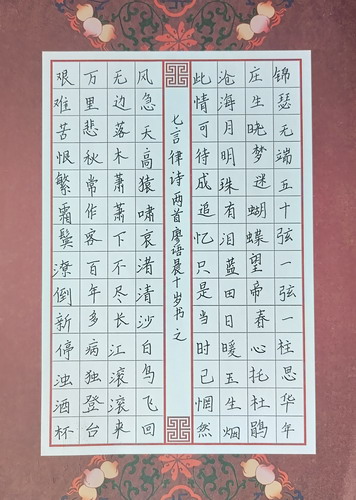 锦瑟无端五十弦一弦一柱思华年
庄生晓梦迷蝴蝶望帝春心托杜鹃
沧海月明珠有泪蓝田日暖玉生烟
此情可待成追忆只是当时已惘然
七言律诗两首廖语晨十岁书之
风急天高猿啸哀渚清沙白鸟飞回
无边落木萧萧下不尽长江滚滚来
万里悲秋常作客百年多病独登台
艰难苦恨繁霜鬓潦倒新停浊酒杯